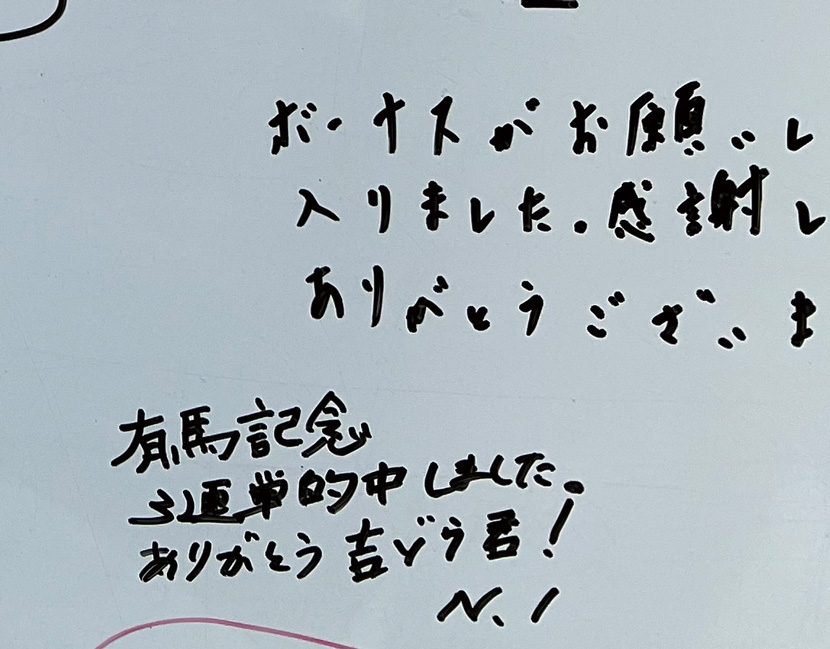 ボーナスがお願いし
入りました。感謝し
ありがとうございま
有馬記念
3連単的中しました。
ありがとう 吉どう君!
N. I